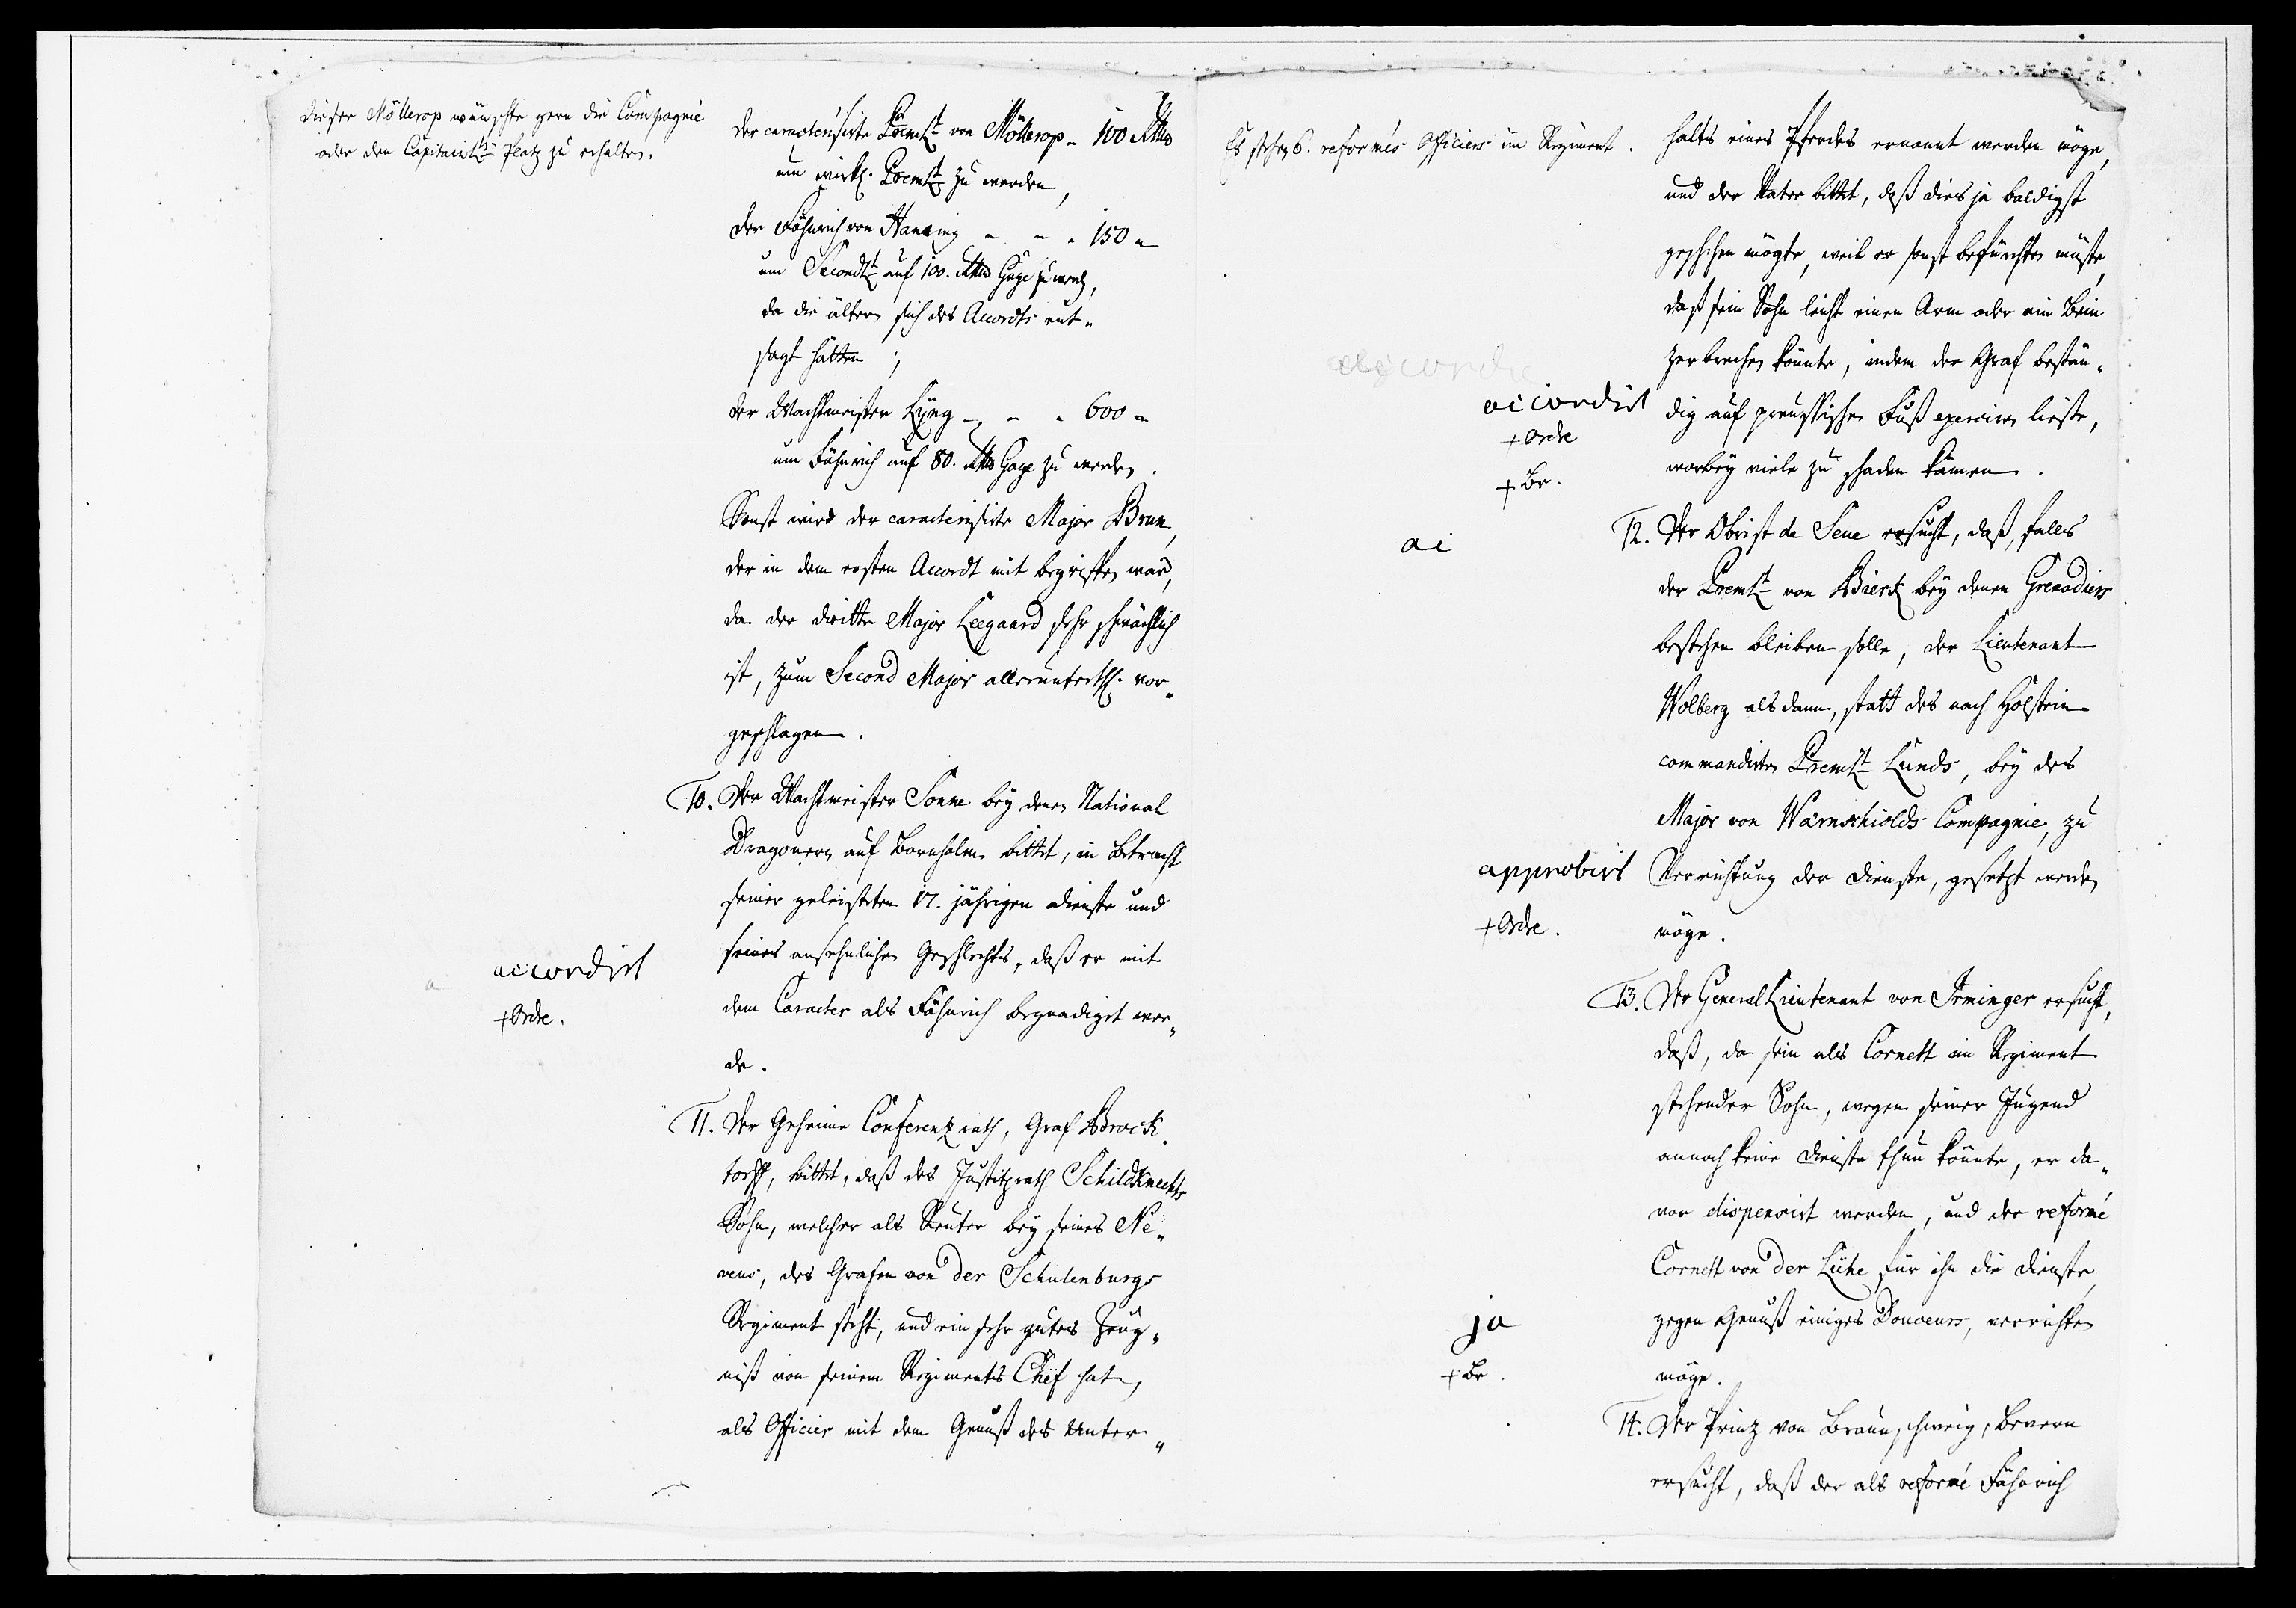 Dieser Möllerop wünschte gern die Compagnie
oder den Capitainlts Platz zu erhalten.
der caracterisirte PremLt von Möllerop - 100 Rthlr
um wirkl. PremLt zu werden,
der Fähnrich von Hansing - - - 150 -
um SecondLt auf 100. Rthlr Gage zu werden,
da die ältern sich des Accordts ent-
sagt hätten;
der Wachtmeister Lÿng - - - 600 -
um Fähnrich auf 80. Rthlr Gage zu werden.
Sonst wird der caracterisirte Major Brun,
der in dem ersten Accordt mit begriffen war,
da der dritte Major Leegaard sehr schwächlich
ist, zum Second Major allerunterth. vor-
geschlagen.
10. Der Wachtmeister Sonne bey denen National
Dragonern auf Bornholm bittet, in Betracht
seiner geleisteten 17. jährigen Dienste und
seines ansehnlichen Geschlechts, daß er mit
dem Caracter als Fähnrich begnadiget wer-
de.
accordirt
+ Ordre.
11. Der Geheime Conferenzrath, Graf Brock-
torff, bittet, daß des Justitzrath Schildknechts
Sohn, welcher als Reuter bey seines Ne-
veus, des Grafen von der Schulenburgs
Regiment steht, und ein sehr gutes Zeug-
niß von seinem Regiments Chef hat,
als Officier mit dem Genuß des Unter-
Es stehen 6. reformés Officiers im Regiment.
halts eines Pferdes ernannt werden möge,
und der Vater bittet, daß dies ja baldigst
geschehen mögte, weil er sonst befürchten müste,
daß sein Sohn leicht einen Arm oder ein Bein
zerbrechen könnte, indem der Graf bestän-
dig auf preussischen Fuß exerciren liesse,
worbey viele zu schaden kämen.
accordirt
+ Ordre
+ Br.
12. Der Obrist de Seue ersucht, daß, falls
der PremLt von Bierk bey denen Grenadiers
bestehen bleiben solle, der Lieutenant
Wolberg alsdann, statt des nach Holstein
commandirten PremLt Lunds, bey des
Major von Wärnschiolds Compagnie, zu
Verrichtung der Dienste, gesetzt werden
möge.
approbirt
+ Ordre.
13. Der General Lieutenant von Irminger ersucht,
daß, da sein als Cornett im Regiment
stehender Sohn, wegen seiner Jugend
annoch keine Dienste thun könnte, er da-
von dispensirt werden, und der reformé
Cornett von der Lühe für ihn die Dienste,
gegen Genuß einiges Douceurs, verrichten
möge.
ja
+ Br.
14. Der Prinz von Braunschweig, Bevern
ersucht, daß der als reformé Fähnrich